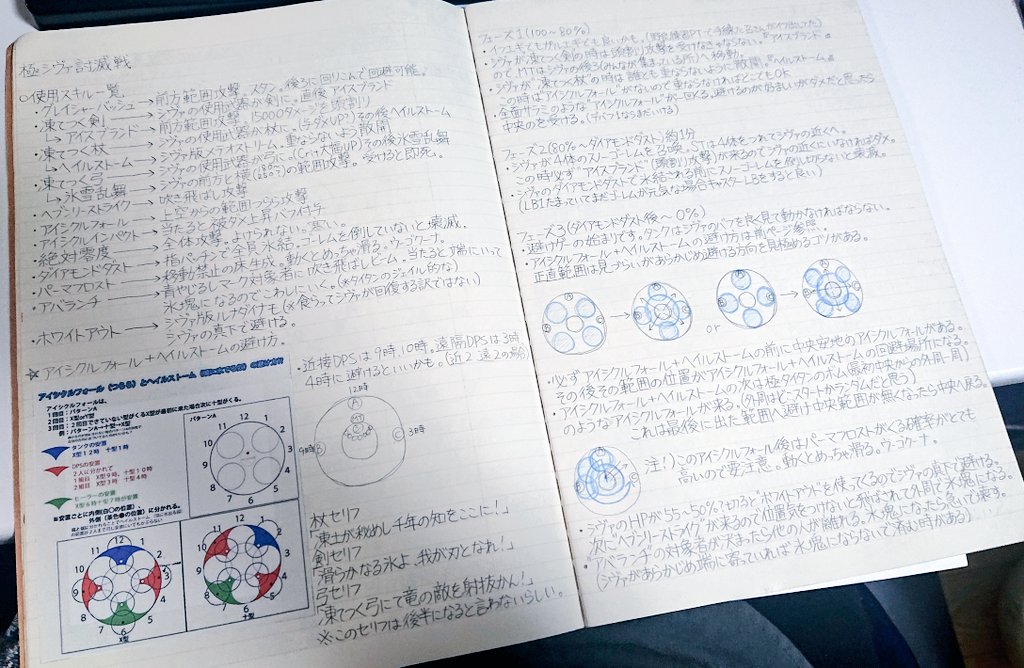 極シヴァ討滅戦
○使用スキル一覧
・グレイシャーバッシュ→前方範囲攻撃。スタン。後ろに回りこんで回避可能。
・凍てつく剣→シヴァの使用武器が剣に。直後アイスブランド
↳アイスブランド→前方範囲攻撃。15000ダメージを頭割り
・凍てつく杖→シヴァの使用武器が杖に。その後ヘイルストーム
↳ヘイルストーム→シヴァ版メテオストリーム。重ならないよう散開
・凍てつく弓→シヴァの使用武器が弓に。その後氷雪乱舞
↳氷雪乱舞→シヴァの前方と横の範囲攻撃。受けると即死。
・ヘブンリーストライク→吹き飛ばし攻撃
・アイシクルフォール→上空からの範囲つらら攻撃
・アイシクルインパクト→当たると被ダメ上昇デバフ付与
・絶対零度→全体攻撃。よけられない。寒い。
・ダイアモンドダスト→指パッチンで全員氷結。ゴーレムを倒していないと壊滅。
・パーマフロスト→移動禁止の床生成。動くとめっちゃ滑る。ウーゴクーナ。
・アバランチ→青やじるしマーク対象者に吹き飛ばしビーム。当たると端にいって
氷塊になるのでこわしにいく。(※タイタンのジェイル的な)
・ホワイトアウト→シヴァ版ルナダイナモ(※食らってシヴァが回復する訳ではない)
シヴァの真下で避ける。
☆アイシクルフォール+ヘイルストームの避け方。
アイシクルフォール(つらら)とヘイルストーム
アイシクルフォールは、
1回目:パターンA
2回目:X型or十型
タンクの安置
X型12時 十型1時
DPSの安置
2人に分かれて
1組目 X型9時、十型10時
2組目 X型3時 十型4時
ヒーラーの安置
X型6時十型7時が安置
パターンA
11 12 1
10 2
9 3
8 4
7 6 5
X型
十型
・近接DPSは9時、10時。遠隔DPSは3時、
4時に避けるといいかも。(近2 遠2の場合)
12時
A
MT
9時 B
C 3時
杖セリフ
「凍土が秘めし千年の知をここに!」
剣セリフ
「滑らかなる氷よ、我が刃となれ!」
弓セリフ
「凍てつく弓にて竜の敵を射抜かん!」
※このセリフは後半になると言わないらしい。
フェーズ1(100~80%)
・シヴァが凍てつく剣の時は頭割り攻撃を受けなきゃならない。"アイスブランド"
ので、MTはシヴァの後ろ(みんなが集まっている所)へ移動。
・シヴァが"凍てつく杖"の時は誰とも重ならないように散開。"ヘイルストーム"
この時は"アイシクルフォール"がないので重ならなければどこでもOK
・全面サークルのような"アイシクルフォール"が一回くる。避けるのが好ましいがダメだと思ったら
中央のを受ける。(デバフ1ならまだいける)
フェーズ2(80%~ダイアモンドダスト)約1分
・シヴァが4体のスノーゴーレムを召喚。STは4体をつれてシヴァの近くへ。
この時必ず"アイスブランド"(頭割り攻撃)が来るのでシヴァの近くにいなければダメ。
・シヴァのダイアモンドダストで氷結される前にスノーゴーレムを倒し切らないと壊滅。
(LB1たまっていてまだゴーレムが元気な場合キャスターLBをすると良い)
フェーズ3(ダイアモンドダスト後~0%)
・避けゲーの始まりです。タンクはシヴァのバフを良く見て動かなければならない。
・アイシクルフォール+ヘイルストームの避け方は前ページ参照。
正直範囲は見づらいがあらかじめ避ける方向を見極めるコツがある。
or
・必ずアイシクルフォール+ヘイルストームの前に中央安地のアイシクルフォールがある。
その後その範囲の位置がアイシクルフォール+ヘイルストームの回避場所になる。
・アイシクルフォール+ヘイルストームの次は極タイタンのボム(最初中央からの外周一周)
のようなアイシクルフォールが来る。(外周はどこスタートかランダムだと思う)
これは最後に出た範囲へ避け中央範囲が無くなったら中央へ戻る。
注!)このアイシクルフォール後はパーマフロストがくる確率がとても
高いので要注意。動くとめっちゃ滑る。ウーゴクーナ。
・シヴァのHPが55~50%で切ると"ホワイトアウト"を使ってくるのでシヴァの真下で避ける。
次に"ヘブンリーストライク"が来るので位置取りをつけないと飛ばされて外周で氷塊になる。
・アバランチの対象者が決まったら他の人が離れる。氷塊になったら急いで壊す。
(シヴァがあらかじめ端に寄っていれば氷塊にならないで済む時がある)